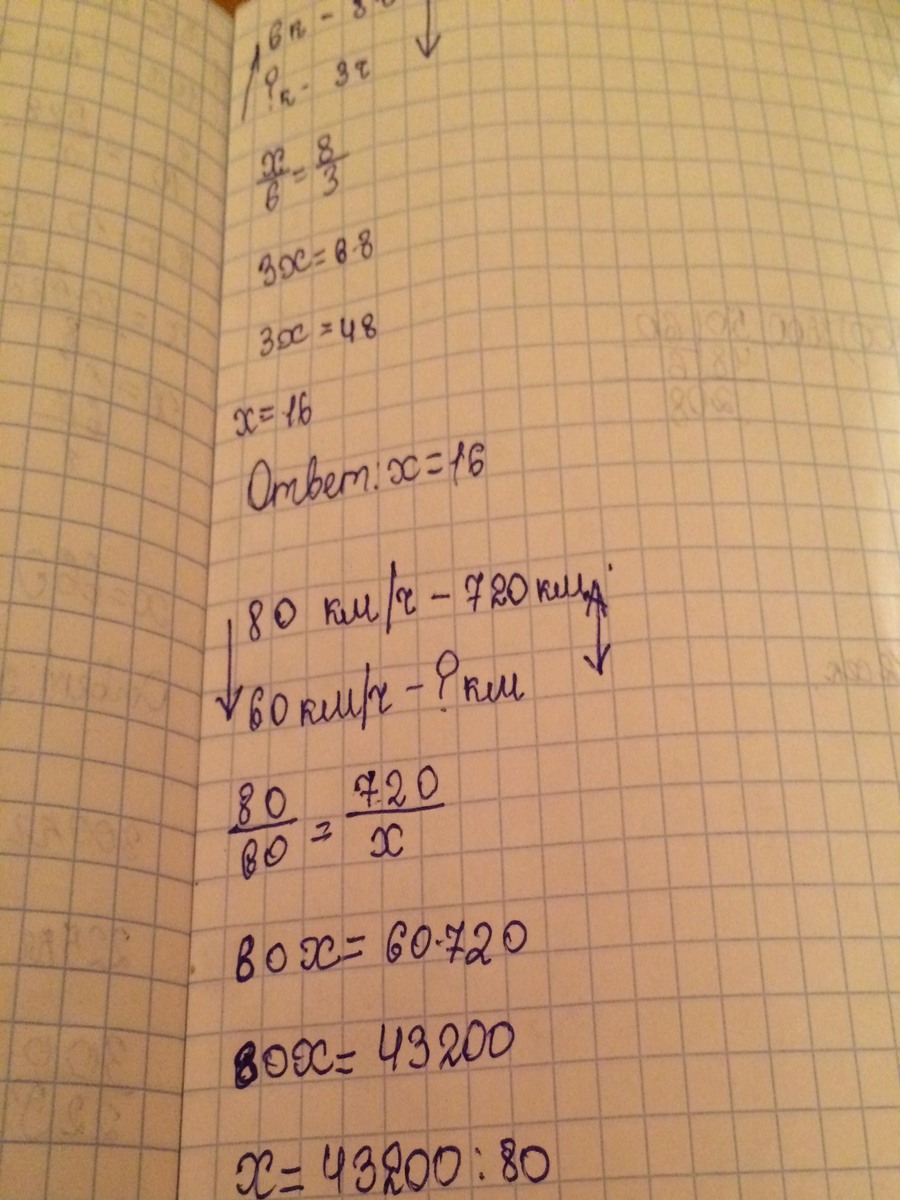 6 к - 8 ч
? к - 3 ч
x/6 = 8/3
3x = 6·8
3x = 48
x = 16
Ответ: x = 16
80 км/ч - 720 км
60 км/ч - ? км
80/60 = 720/x
80x = 60·720
80x = 43200
x = 43200 : 80